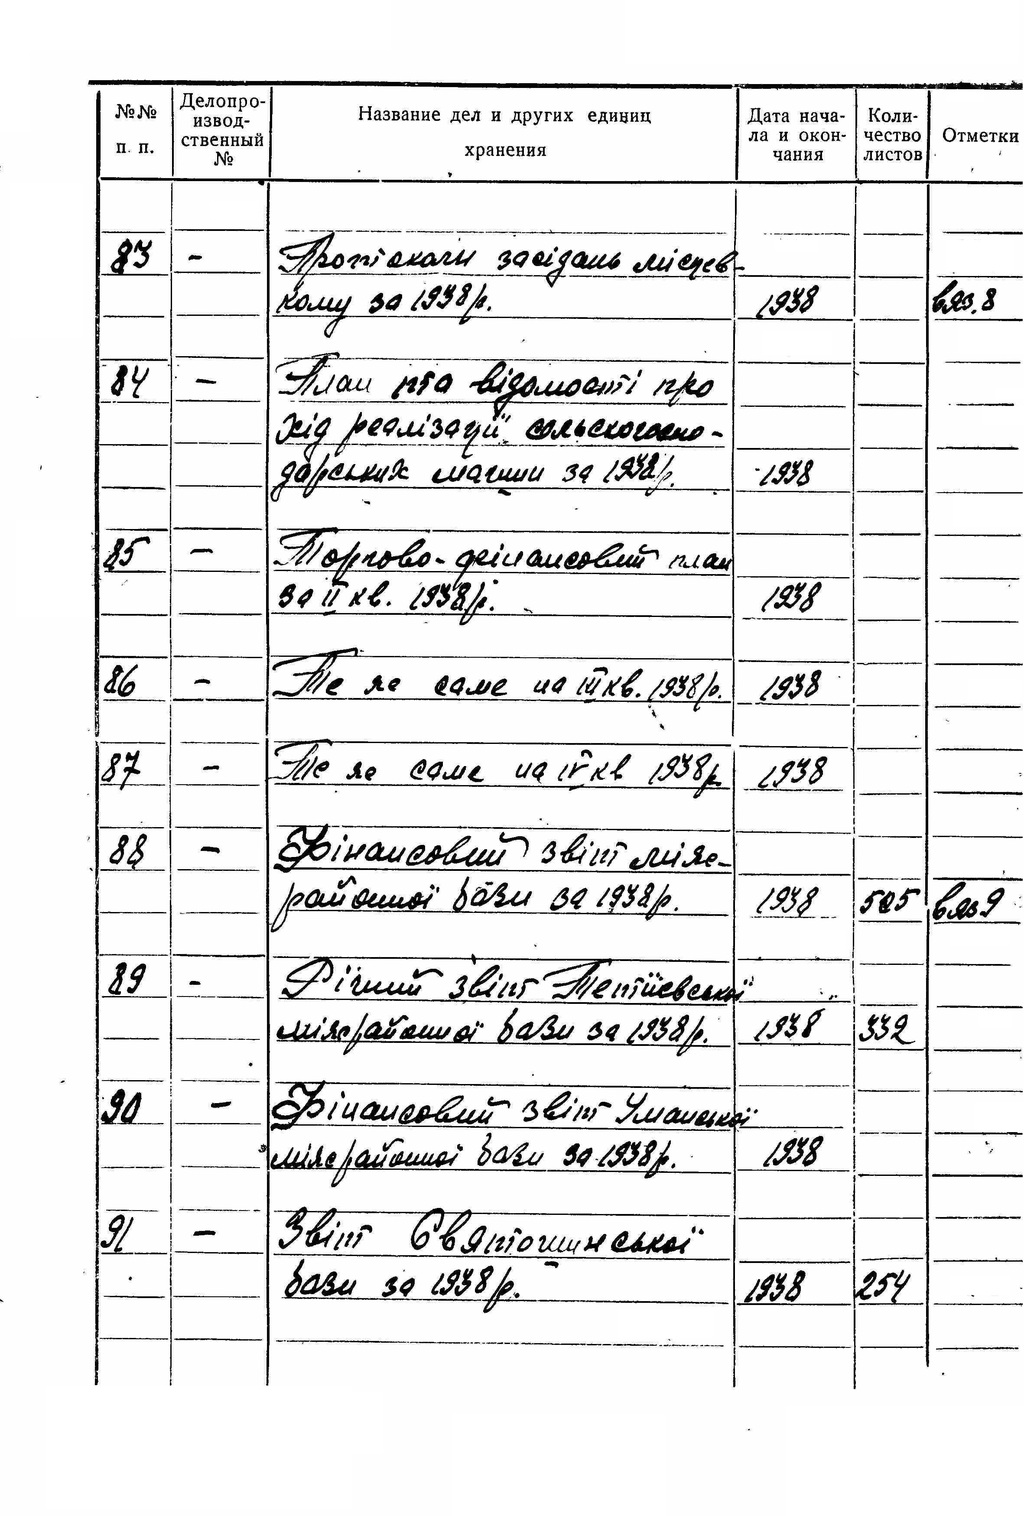 №№ п. п.
Делопро-
извод-
ственный
№
Название дел и других единиц
хранения
Дата нача-
ла и окон-
чания
Коли-
чество
листов
Отметки
83 - Протоколи засідань місцев-
кому за 1938 р. 1938 вяз. 8
84 - План та відомості про
хід реалізації сольськогоспо-
дарських машин за 1938 р. 1938
85 - Торгово-фінансовий план
за II кв. 1938 р. 1938
86 - Те же саме на III кв. 1938 р. 1938
87 - Те же саме на IV кв 1938 р 1938
88 - Фінансовий звіт міже-
районної бази за 1938 р. 1938 505 вяз 9
89 - Річний звіт Тетіївської
міжрайонної бази за 1938 р. 1938 332
90 - Фінансовий звіт Уманської
міжрайонної бази за 1938 р. 1938
91 - Звіт Святошинської
бази за 1938 р. 1938 254